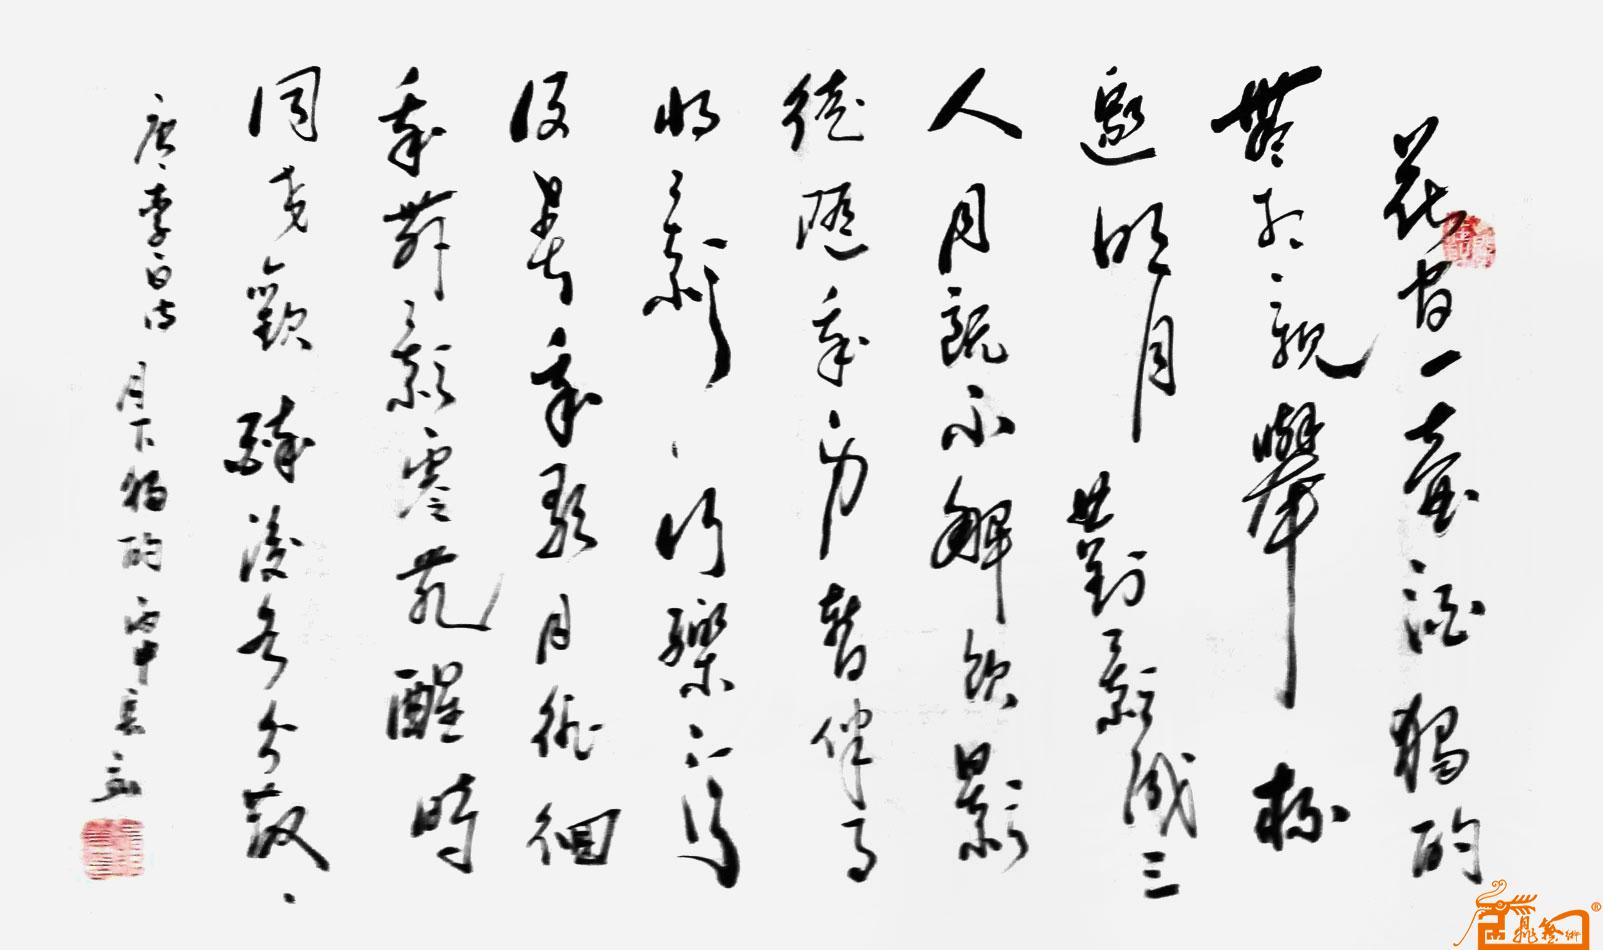 花間一壺酒獨酌
無相親舉杯
邀明月對影成三
人月既不解飲影
徒隨我身暫伴月
將影行樂須
及春我歌月徘徊
我舞影零亂醒時
同交歡醉後各分散
唐李白詩月下獨酌丙申